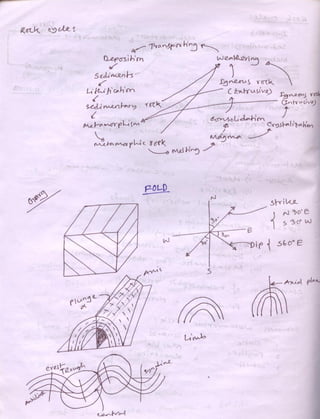 Rock cycle:
Transporting
Deposition
Weathering
Sediments
Igneous rock
(Extrusive)
Lithification
Igneous rock
(Intrusive)
Sedimentary rock
Consolidation
Metamorphism
Crystalization
Magma
metamorphic rock
Melting
FOLD
N
Strike
N 30°E
S 30°W
W
E
Dip
S60°E
S
Axis
Plunge
Axial plane
Limb
Crest
Trough
Syncline
Anticline